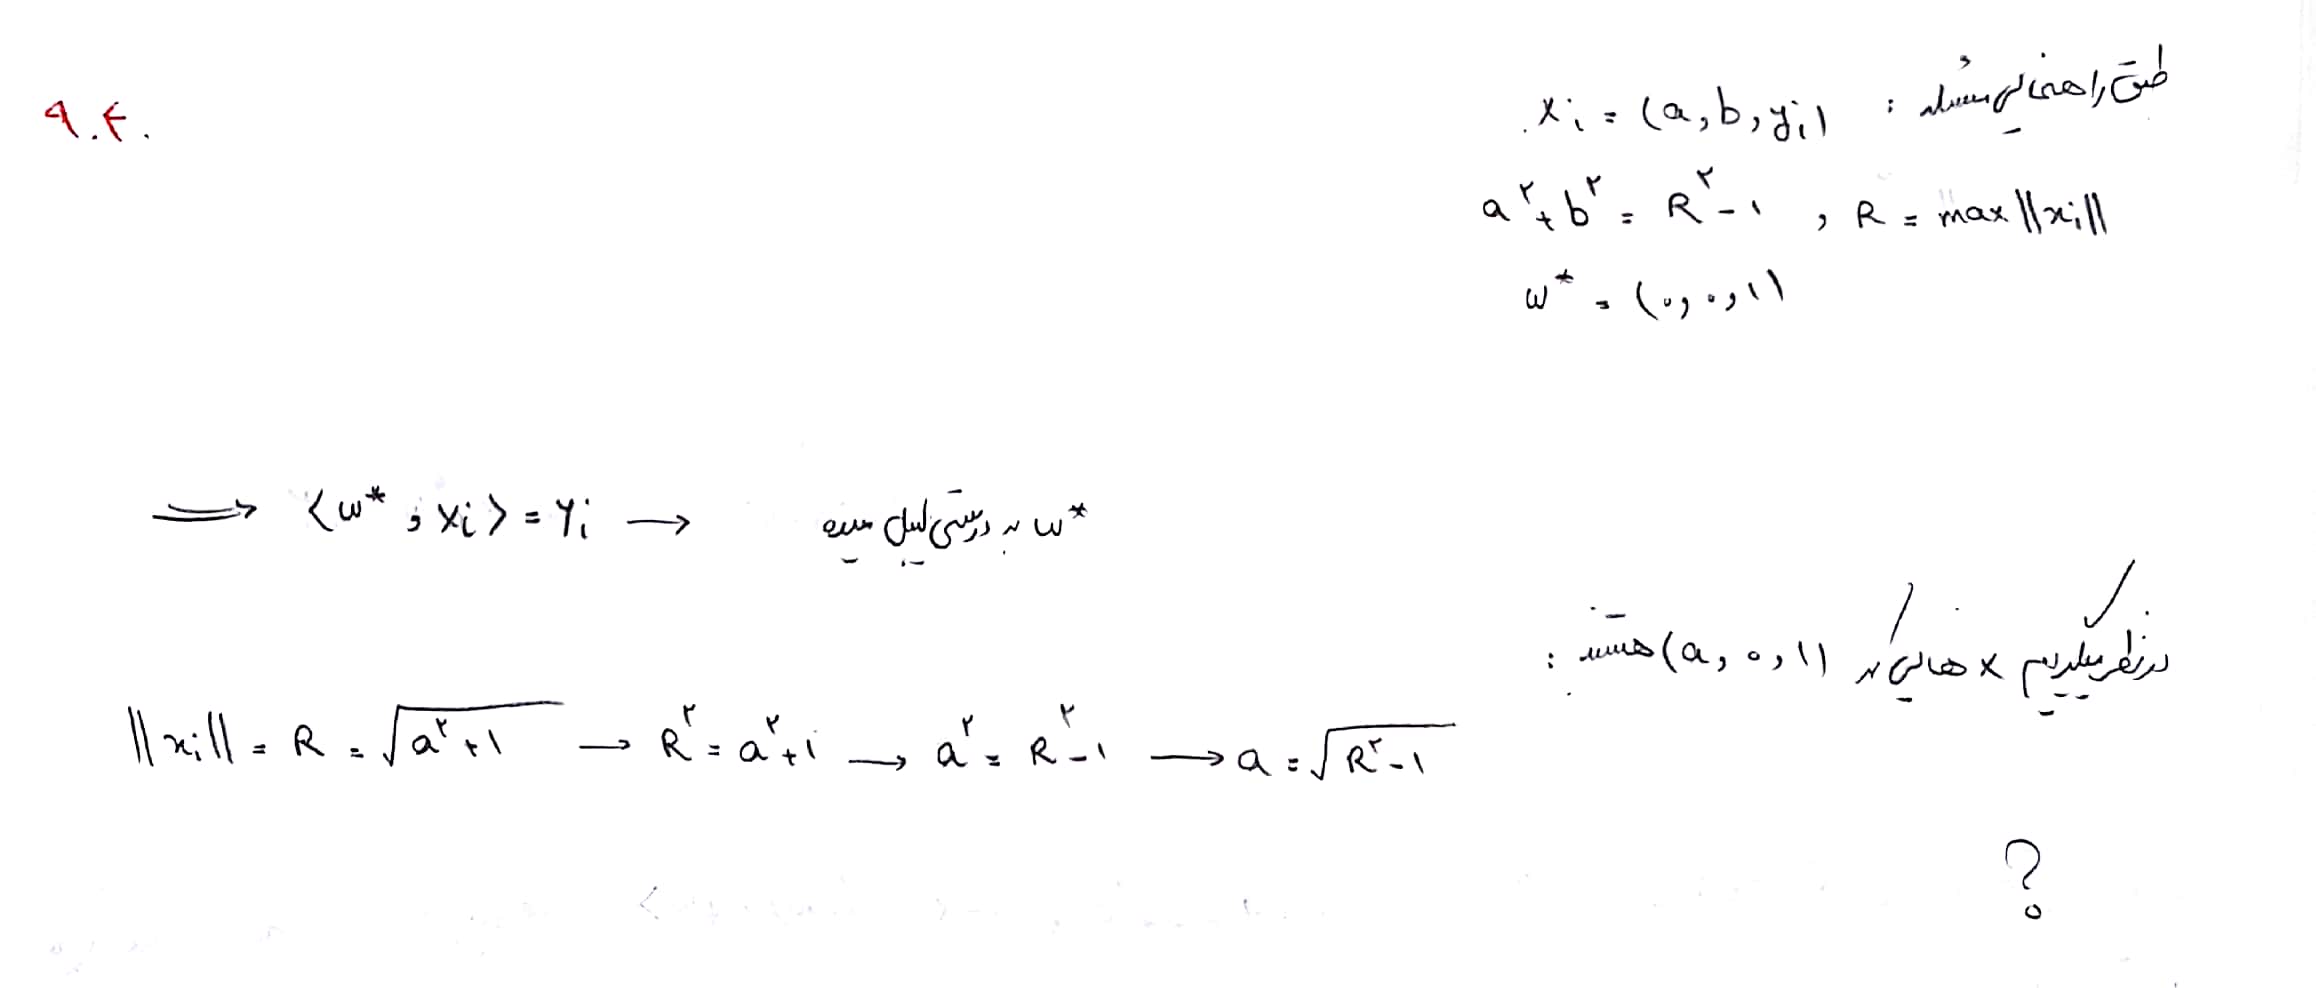 ۹.۴.
طبق راهنمایی مسئله : xᵢ = (a, b, yᵢ)
a² + b² = R² - ۱ , R = max ||xᵢ||
w* = (۰, ۰, ۱)
⟹ ⟨w*, xᵢ⟩ = yᵢ → w* به درستی لیبل میده
در نظر میگیریم x هایی که (a, ۰, ۱) هستند :
||xᵢ|| = R = √(a² + ۱) → R² = a² + ۱ → a² = R² - ۱ → a = √(R² - ۱)
?